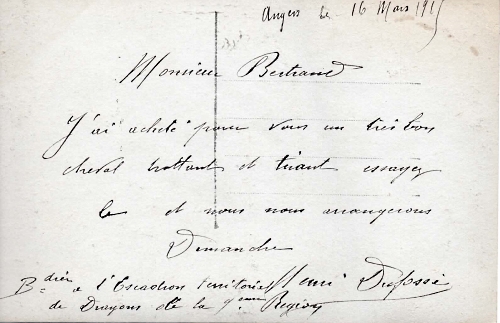 Angers le 16 Mars 1915
Monsieur Bertrand
J'ai acheté pour vous un très bon
cheval trottant et tirant essayez
le et nous nous arrangerons
Dimanche
Henri
B^dier à l'Escadron territorial
de Dragons de la 9eme Région